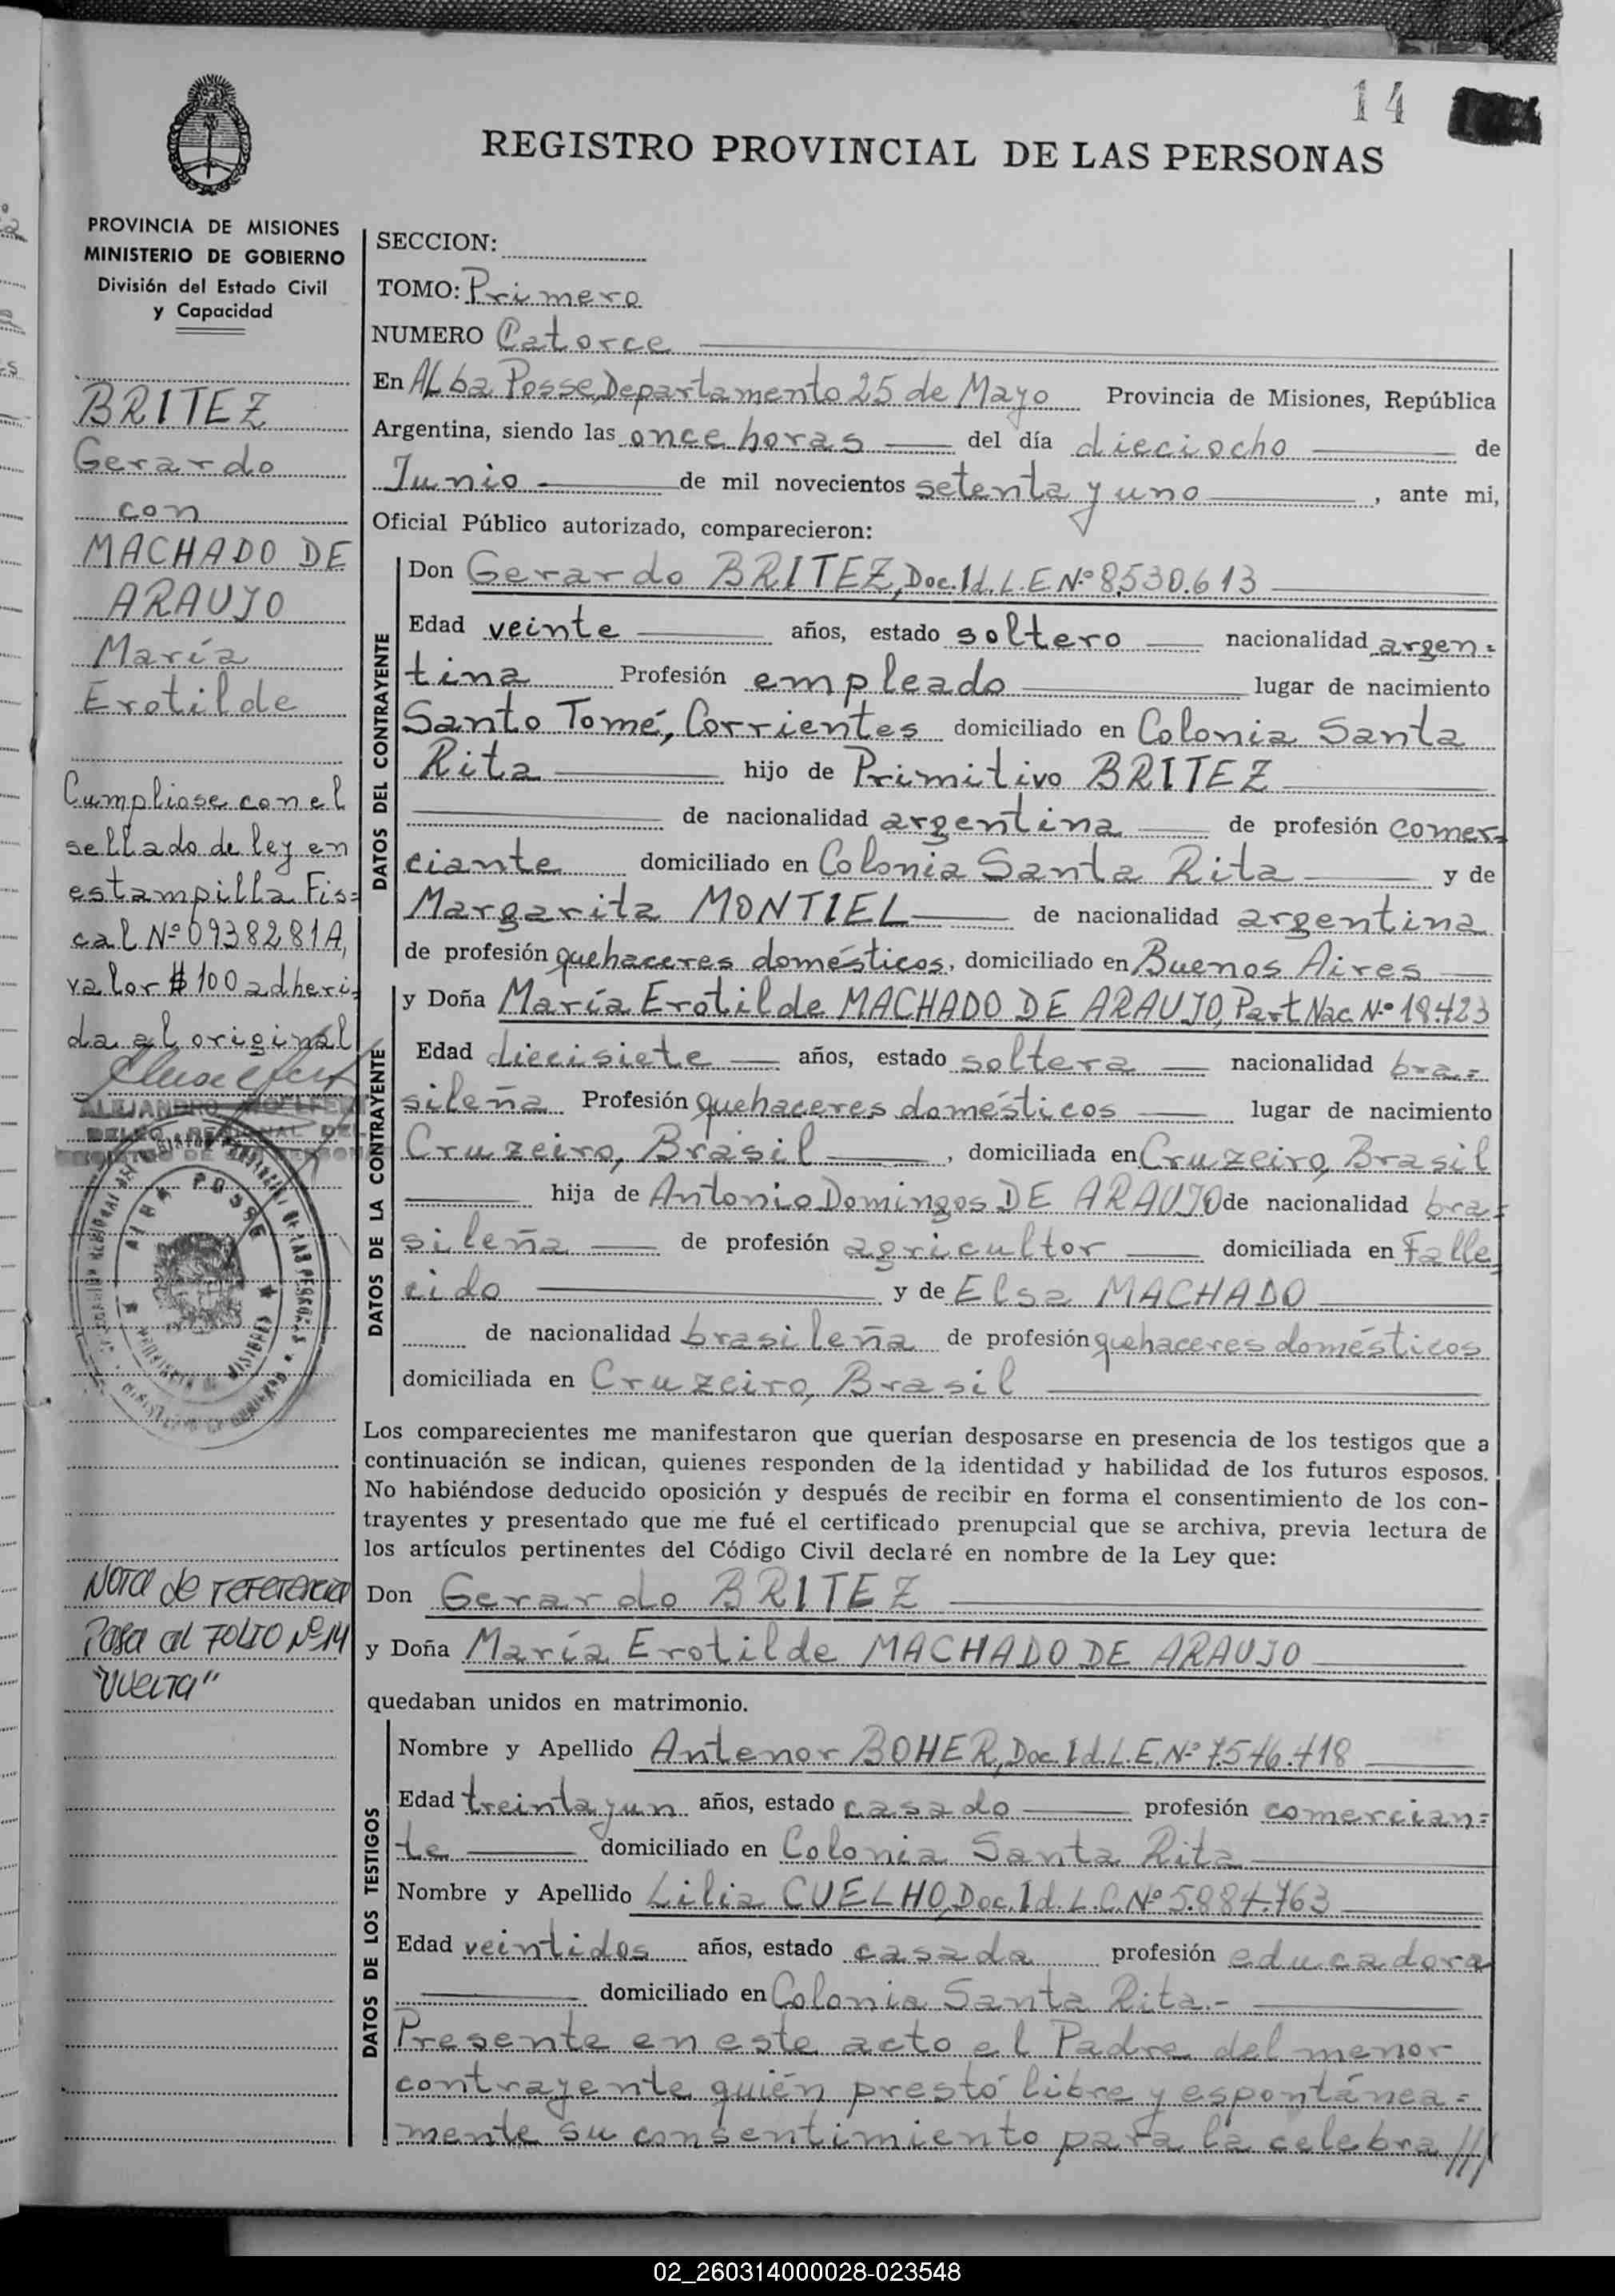 14
REGISTRO PROVINCIAL DE LAS PERSONAS
PROVINCIA DE MISIONES
MINISTERIO DE GOBIERNO
División del Estado Civil
y Capacidad
BRITEZ
Gerardo
con
MACHADO DE
ARAUJO
María
Erotilde
Cumpliose con el
sellado de ley en
estampilla Fis=
cal Nº 0938281A,
valor $ 100 adheri=
da al original
ALEJANDRO
DELEG. REGIONAL DEL
REGISTRO DE LAS PERSONAS
ALBA POSSE
PROVINCIA DE MISIONES
Nota de referencia
Pasa al FOLIO Nº 14
"VUELTA"
SECCION:
TOMO: Primero
NUMERO Catorce
En Alba Posse, Departamento 25 de Mayo Provincia de Misiones, República
Argentina, siendo las once horas del día dieciocho de
Junio de mil novecientos setenta y uno, ante mi,
Oficial Público autorizado, comparecieron:
DATOS DEL CONTRAYENTE
Don Gerardo BRITEZ, Doc. Id. L.E. Nº 8.530.613
Edad veinte años, estado soltero nacionalidad argen=
tina Profesión empleado lugar de nacimiento
Santo Tomé, Corrientes domiciliado en Colonia Santa
Rita hijo de Primitivo BRITEZ
de nacionalidad argentina de profesión comer=
ciante domiciliado en Colonia Santa Rita y de
Margarita MONTIEL de nacionalidad argentina
de profesión quehaceres domésticos, domiciliado en Buenos Aires
DATOS DE LA CONTRAYENTE
y Doña María Erotilde MACHADO DE ARAUJO, Part. Nac. Nº 18.423
Edad diecisiete años, estado soltera nacionalidad bra=
sileña Profesión quehaceres domésticos lugar de nacimiento
Cruzeiro, Brasil, domiciliada en Cruzeiro, Brasil
hija de Antonio Domingos DE ARAUJO de nacionalidad bra=
sileña de profesión agricultor domiciliada en Falle=
cido y de Elsa MACHADO
de nacionalidad brasileña de profesión quehaceres domésticos
domiciliada en Cruzeiro, Brasil
Los comparecientes me manifestaron que querían desposarse en presencia de los testigos que a
continuación se indican, quienes responden de la identidad y habilidad de los futuros esposos.
No habiéndose deducido oposición y después de recibir en forma el consentimiento de los con-
trayentes y presentado que me fué el certificado prenupcial que se archiva, previa lectura de
los artículos pertinentes del Código Civil declaré en nombre de la Ley que:
Don Gerardo BRITEZ
y Doña María Erotilde MACHADO DE ARAUJO
quedaban unidos en matrimonio.
DATOS DE LOS TESTIGOS
Nombre y Apellido Antenor BOHER, Doc. Id. L.E. Nº 7.546.418
Edad treinta y un años, estado casado profesión comercian=
te domiciliado en Colonia Santa Rita
Nombre y Apellido Lilia CUELHO, Doc. Id. L.C. Nº 5.884.763
Edad veintidos años, estado casada profesión educadora
domiciliado en Colonia Santa Rita.-
Presente en este acto el Padre del menor
contrayente quién prestó libre y espontánea=
mente su consentimiento para la celebra///
02_260314000028-023548